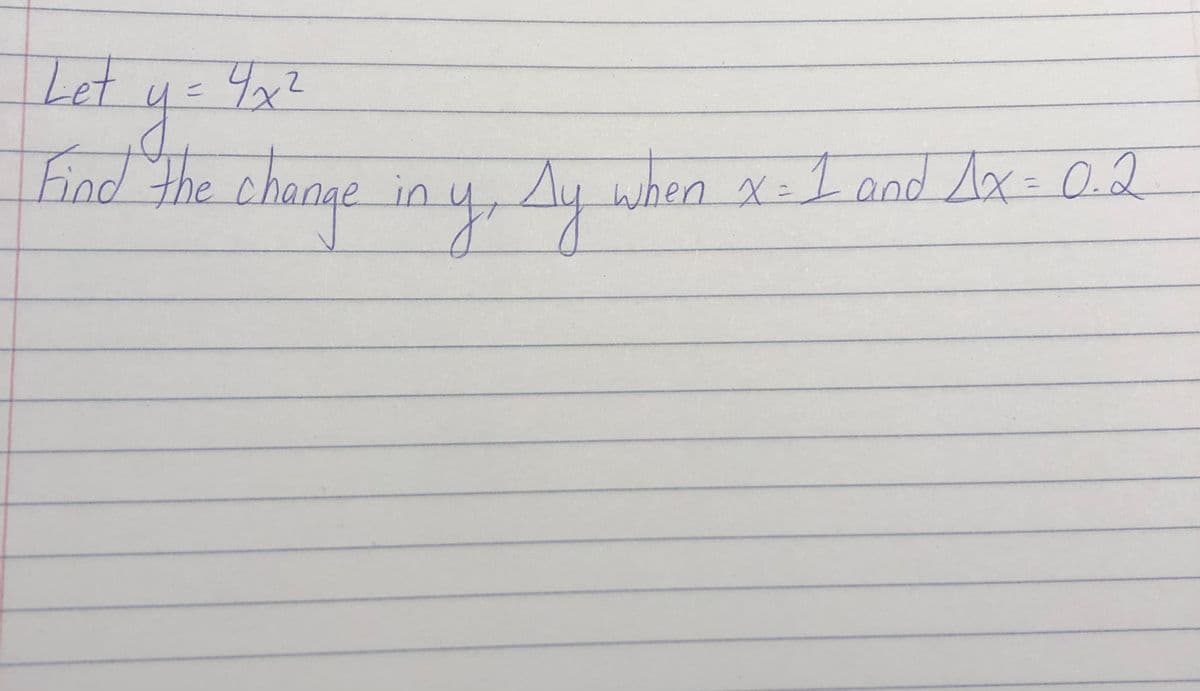 Let y = 4x²
Find the change in y, Δy when x = 1 and Δx = 0.2